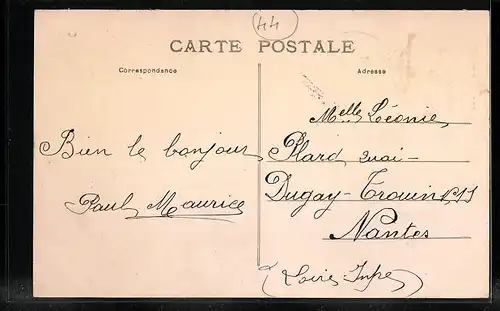 44
CARTE POSTALE
Correspondance
Adresse
Melle Léonie
Bien le bonjour
Plard quai-
Paul Maurice
Dugay-Trouin
Nantes
(Loire Infre)